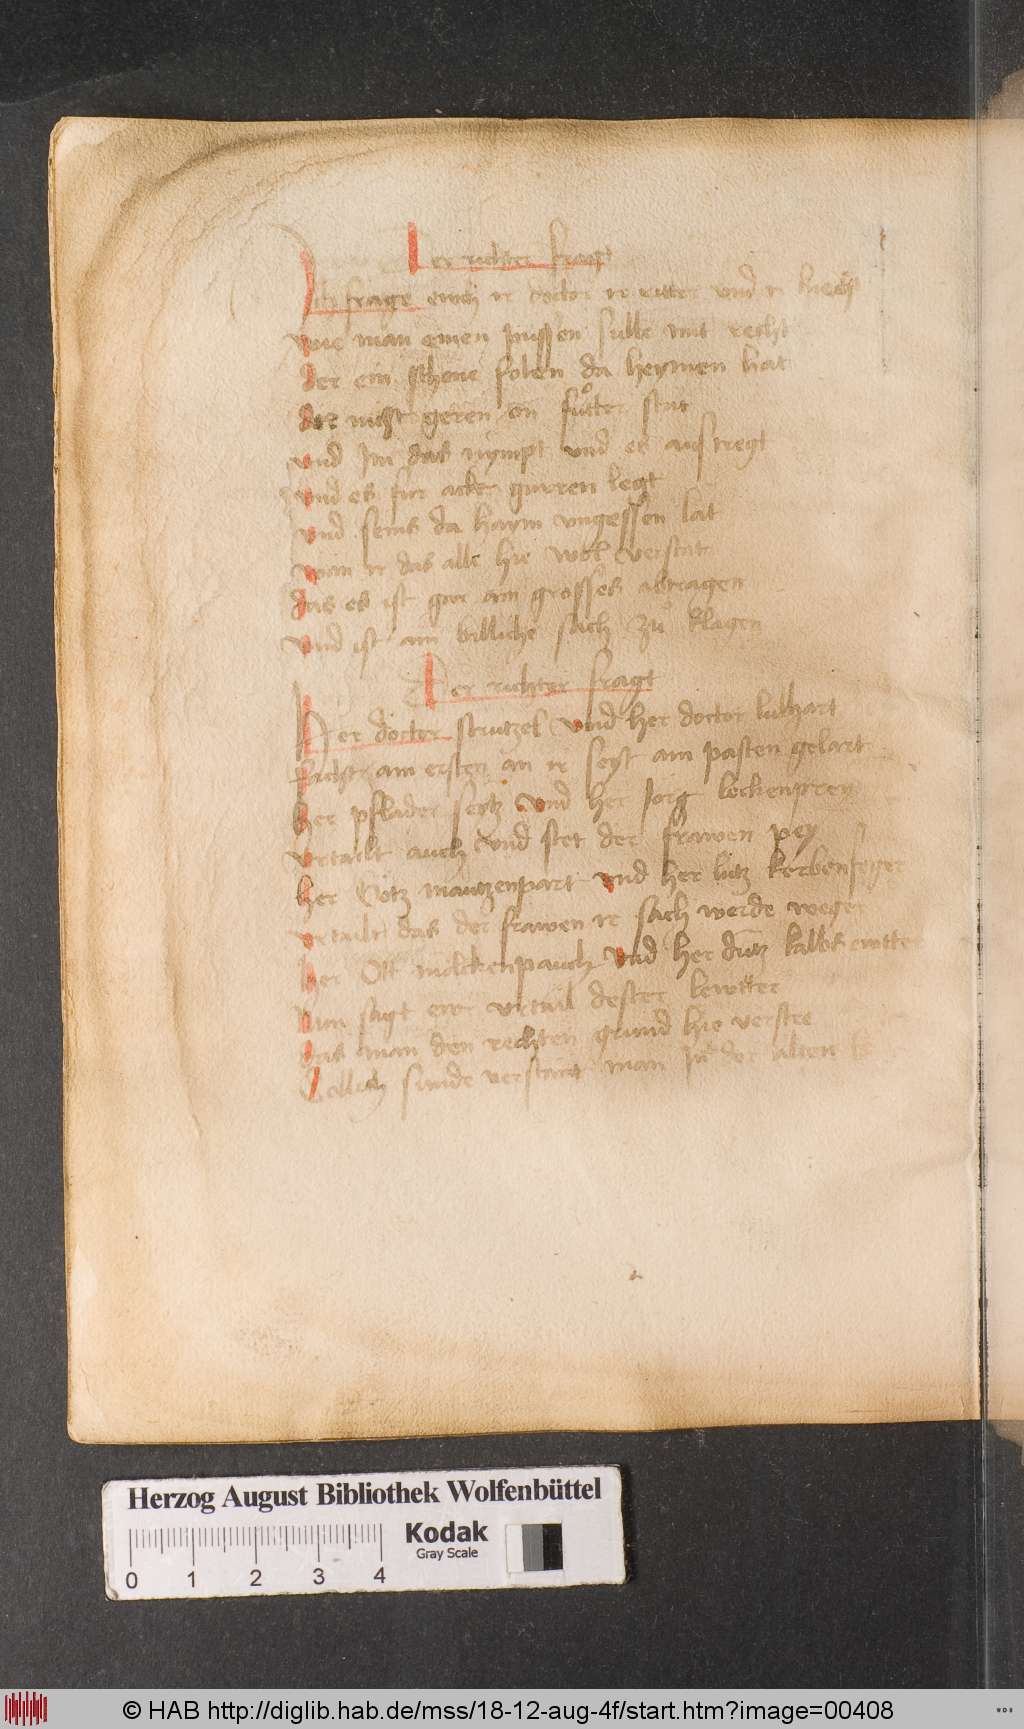 Der richter fragt
Ich frage euch ir doctor ir ritter und ir knecht
wie man einen pussen sulle mit recht
der ein schone folen da heymen hat
der nicht geren on fuͦtter stat
und Im das nympt und es aufregt
und es fur acker gurren legt
und seins da haym ungessen lat
wan ir das alle hie wol verstat
das es ist gar ain grosses abtragen
und ist ain billiche sach zuͦ klagen
Der richter fragt
Her docter strutzel und her doctor lulhart
sicht am ersten an ir seyt am pasten gelart
her pflader seytz und her Jorg leckenprey
urtailt auch und stet der frawen pey
her Cotz mautzenpart und her lutz kerbenfeger
urtailt das der frawen ir sach werde weger
her Ott molckenpauch und her dutz kalbseutter
Nun sagt ewr urtail dester lewtter
das man den rechten grund hie verste
Sollich sunde verstantt man In der alten
Herzog August Bibliothek Wolfenbüttel
Kodak
Gray Scale
0 1 2 3 4
© HAB http://diglib.hab.de/mss/18-12-aug-4f/start.htm?image=00408